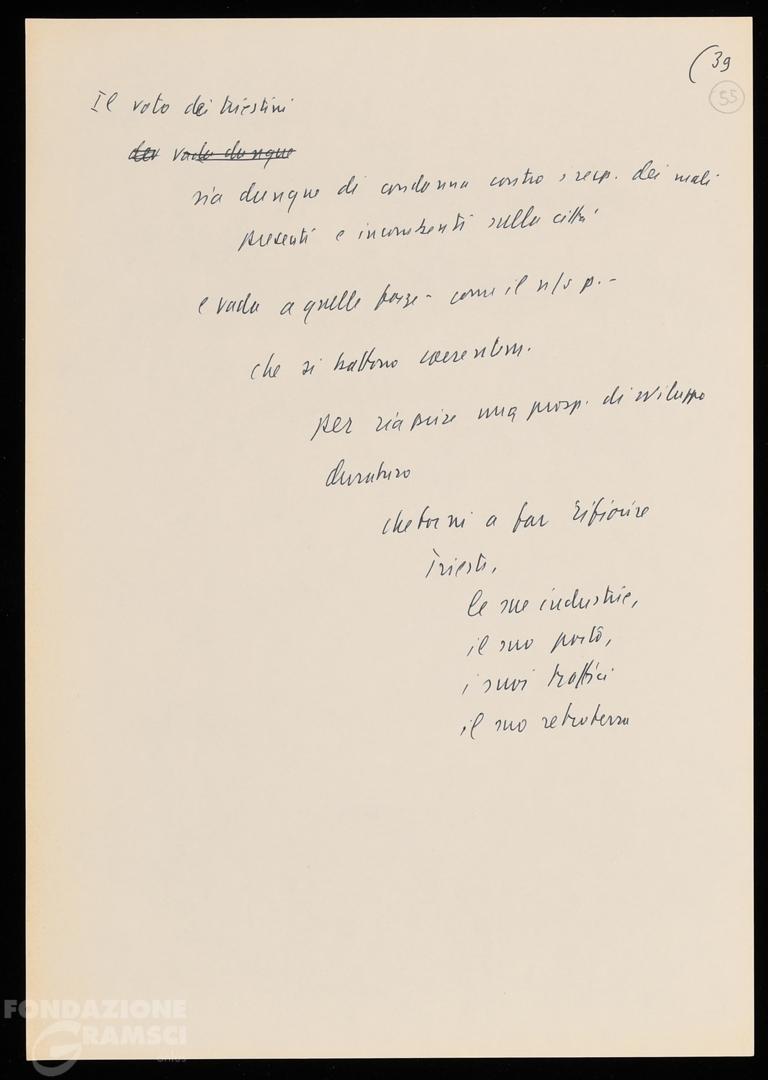 (39
55
Il voto dei triestini
vada dunque
sia dunque di condanna contro i resp. dei mali
presenti e incombenti sulla città
e vada a quelle forze - come il n/s p. -
che si battono coerentem.
per riaprire una prosp. di sviluppo
duraturo
che torni a far rifiorire
Trieste,
le sue industrie,
il suo porto,
i suoi traffici
il suo retroterra
FONDAZIONE
GRAMSCI
onlus